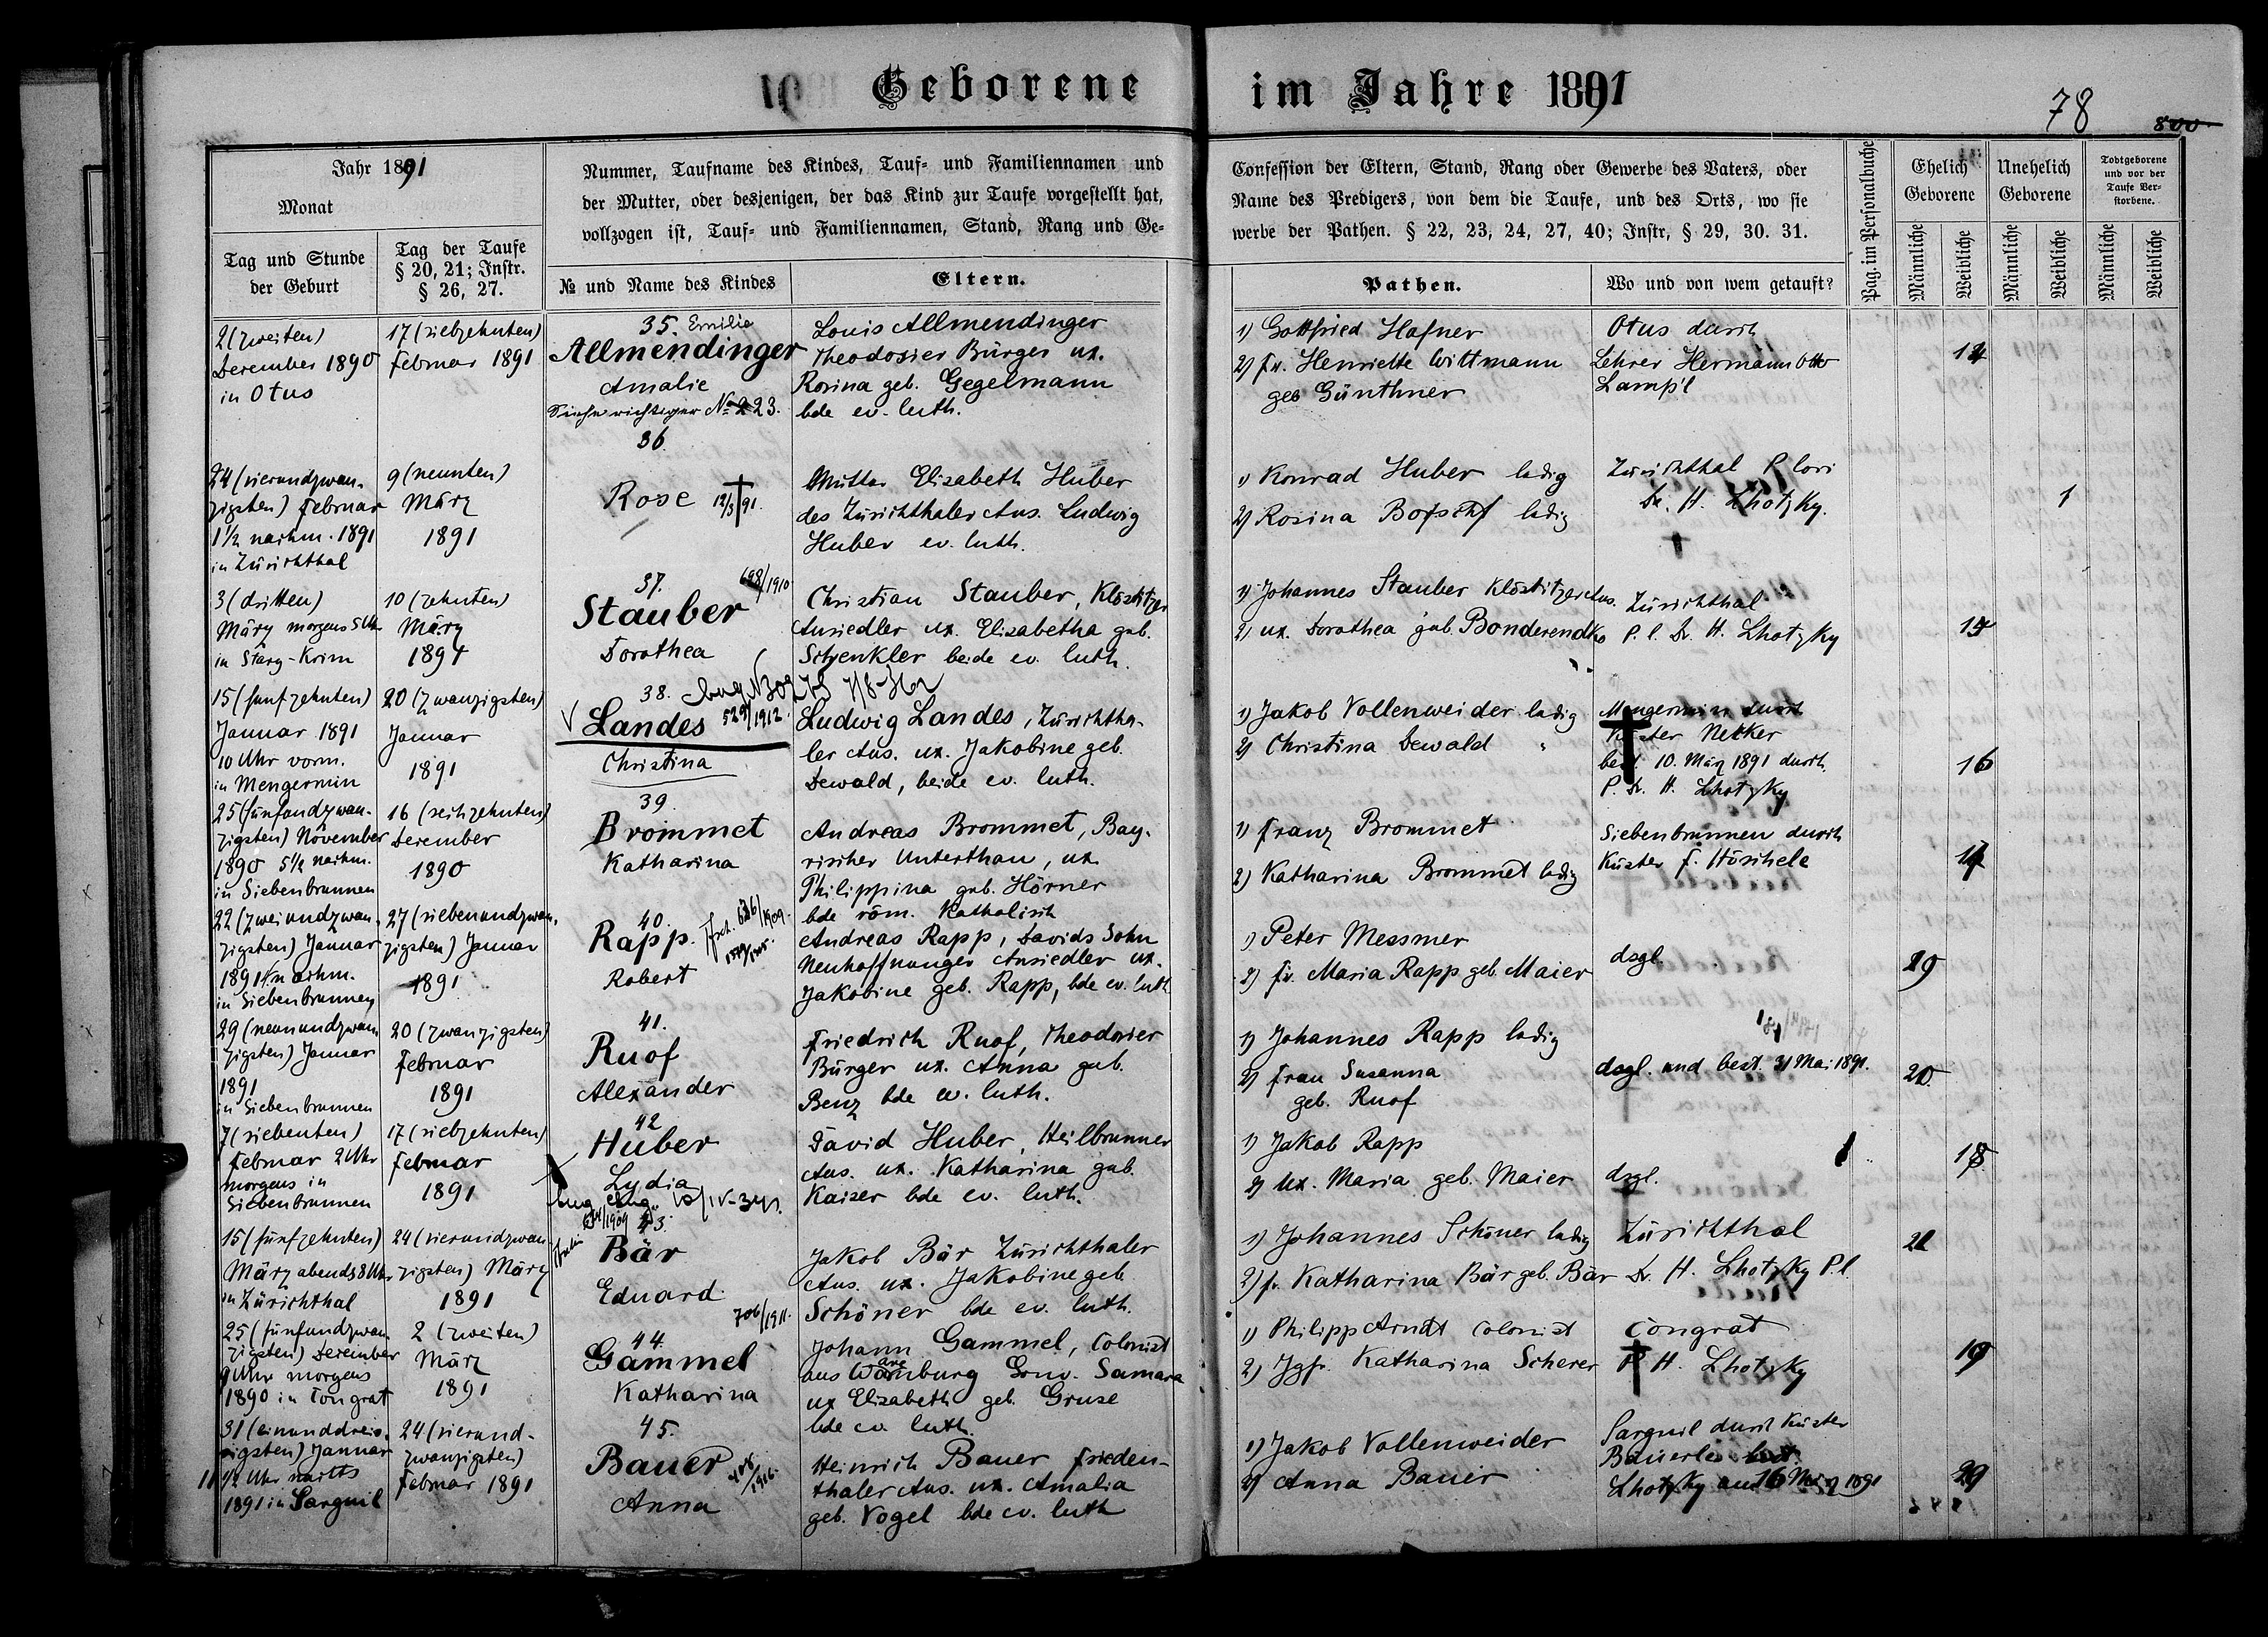 Geborene im Jahre 1891
78
800
Jahr 1891
Monat
Tag und Stunde
der Geburt
Tag der Taufe
§ 20, 21; Instr.
§ 26, 27.
Nummer, Taufname des Kindes, Tauf- und Familiennamen und
der Mutter, oder desjenigen, der das Kind zur Taufe vorgestellt hat,
vollzogen ist, Tauf- und Familiennamen, Stand, Rang und Ge-
№ und Name des Kindes
Eltern.
Confession der Eltern, Stand, Rang oder Gewerbe des Vaters, oder
Name des Predigers, von dem die Taufe, und des Orts, wo sie
werbe der Pathen. § 22, 23, 24, 27, 40; Instr, § 29, 30. 31.
Pathen.
Wo und von wem getauft?
Pag. im Personalbuche
Ehelich
Geborene
Unehelich
Geborene
Todtgeborene
und vor der
Taufe Ver-
storbene.
Männliche
Weibliche
Männliche
Weibliche
Männliche
Weibliche
2 (zweiten)
December 1890
in Otus
17 (siebzehnten)
Februar 1891
35. Emilie
Allmendinger
Amalie
Siehe richtiger № 23.
Louis Allmendinger
Theodosier Bürger ux.
Rosina geb. Gegelmann
bde ev. luth.
1) Gottfried Hafner
2) Fr. Henriette Wittmann
geb Günthner
Otus durch
Lehrer Hermann Otto
Lamp'l
24 (vierundzwan-
zigsten) Februar
1½ nachm. 1891
in Zürichthal
9 (neunten)
März
1891
36.
Rose 12/3 91.
Mutter Elisabeth Huber
des Zürichthaler Ans. Ludwig
Huber ev. luth.
1) Konrad Huber ledig
2) Rosina ledig
Zürichthal P. loci
Dr. H. Lhotzky.
1
3 (dritten)
März morgens 5 Uhr
in Stary-Krim
10 (zehnten)
März
1891
37. 698/1910
Stauber
Dorothea
Christian Stauber, Klöstitzer
Ansiedler ux. Elisabetha geb.
Schenkler beide ev. luth.
1) Johannes Stauber Klöstitzer Ans.
2) ux. Dorothea geb. Bonderendko
Zürichthal
P. l. Dr. H. Lhotzky
15 (funfzehnten)
Januar 1891
10 Uhr vorm.
in Mengermin
20 (zwanzigsten)
Januar
1891
38.
Landes 529/1912.
Christina
Ludwig Landes, Zürichtha-
ler Ans. ux. Jakobine geb.
Dewald, beide ev. luth.
1) Jakob Vollenweider ledig
2) Christina Dewald "
Mengermin durch
Küster Netker
best. 10. März 1891 durch
P. Dr. H. Lhotzky
16
25 (fünfundzwan-
zigsten) November
1890 5½ nachm.
in Siebenbrunnen
16 (sechzehnten)
December
1890
39.
Brommet
Katharina
Andreas Brommet, Bay-
rischer Unterthan, ux
Philippina geb. Hörner
bde röm. Katholisch
1) Franz Brommet
2) Katharina Brommet ledig
Siebenbrunnen durch
Küster F. Höschele
22 (zweiundzwan-
zigsten) Januar
1891 nachm.
in Siebenbrunnen
27 (siebenundzwan-
zigsten) Januar
1891
40.
Rapp.
Robert
Andreas Rapp, Davids Sohn
Neuhoffnunger Ansiedler ux.
Jakobine geb. Rapp, bde ev. luth.
1) Peter Messmer
2) Fr. Maria Rapp geb. Maier
dsgl.
19
29 (neunundzwan
zigsten) Januar
1891
in Siebenbrunnen
20 (zwanzigsten)
Februar
1891
41.
Ruof
Alexander
Friedrich Ruof, Theodosier
Bürger ux. Anna geb.
Benz bde ev. luth.
1) Johannes Rapp ledig
2) Frau Susanna
geb. Ruof
dsgl. und best. 31 Mai 1891.
20
7 (siebenten)
Februar 2 Uhr
morgens in
Siebenbrunnen
17 (siebzehnten)
Februar
1891
42
Huber
Lydia
David Huber, Heilbrunner
Ans. ux. Katharina geb.
Kaiser bde ev. luth.
1) Jakob Rapp
2) Ux. Maria geb. Maier
dsgl.
18
15 (fünfzehnten)
März abends 8 Uhr
in Zürichthal
24 (vierundzwan
zigsten) März
1891
43.
Bär
Eduard
Jakob Bär Zürichthaler
Ans. ux. Jakobine geb
Schöner bde ev. luth.
1) Johannes Schöner ledig
2) Fr. Katharina Bär geb. Bär
Zürichthal
Dr. H. Lhotzky P. l.
21
25 (fünfundzwan
zigsten) December
9 Uhr morgens
1890 in Congrat
2 (zweiten)
März
1891
706/1911.
44.
Gammel
Katharina
Johann Gammel, Colonist
aus Warenburg Gouv. Samara
ux Elizabeth geb. Gruse
bde ev. luth.
1) Philipp Arndt Colonist
2) Jgfr. Katharina Scherer
Congrat
P H. Lhotzky
19
31 (einunddreis-
sigsten) Januar
11½ Uhr nachts
1891 in Sarguil
24 (vierund-
zwanzigsten)
Februar 1891
45.
Bauer
Anna
Heinrich Bauer Frieden-
thaler Ans. ux. Amalia
geb. Vogel bde ev. luth
1) Jakob Vollenweider
2) Anna Bauer
Sarguil durch Küster
Bäuerle best.
Lhotzky am 16 März 1891